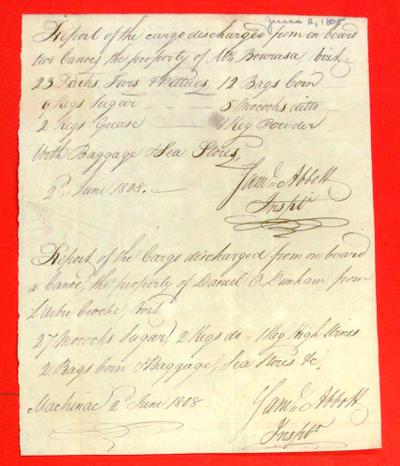 June 2, 1808
Report of the cargo discharged from on board
two Canoes the property of Mr Bourasa Vizt
23 Packs Furs & Peltries, 12 Bags Corn
6 Kegs Sugar 5 Mococks ditto
2 Kegs Grease 1 Keg Powder
With Baggage & Sea Stores,
2d. June 1808.
Saml Abbott
Inspr
Report of the Cargo discharged from on board
a Canoe, the property of Daniel Dunham from
L'arbre Croche, Vizt
27 Mococks Sugar, 2 Kegs do 1 Keg High Wines
2 Bags Corn & Baggage, Sea Stores &c.
Mackinac 2d June 1808
Saml Abbott
Inspr